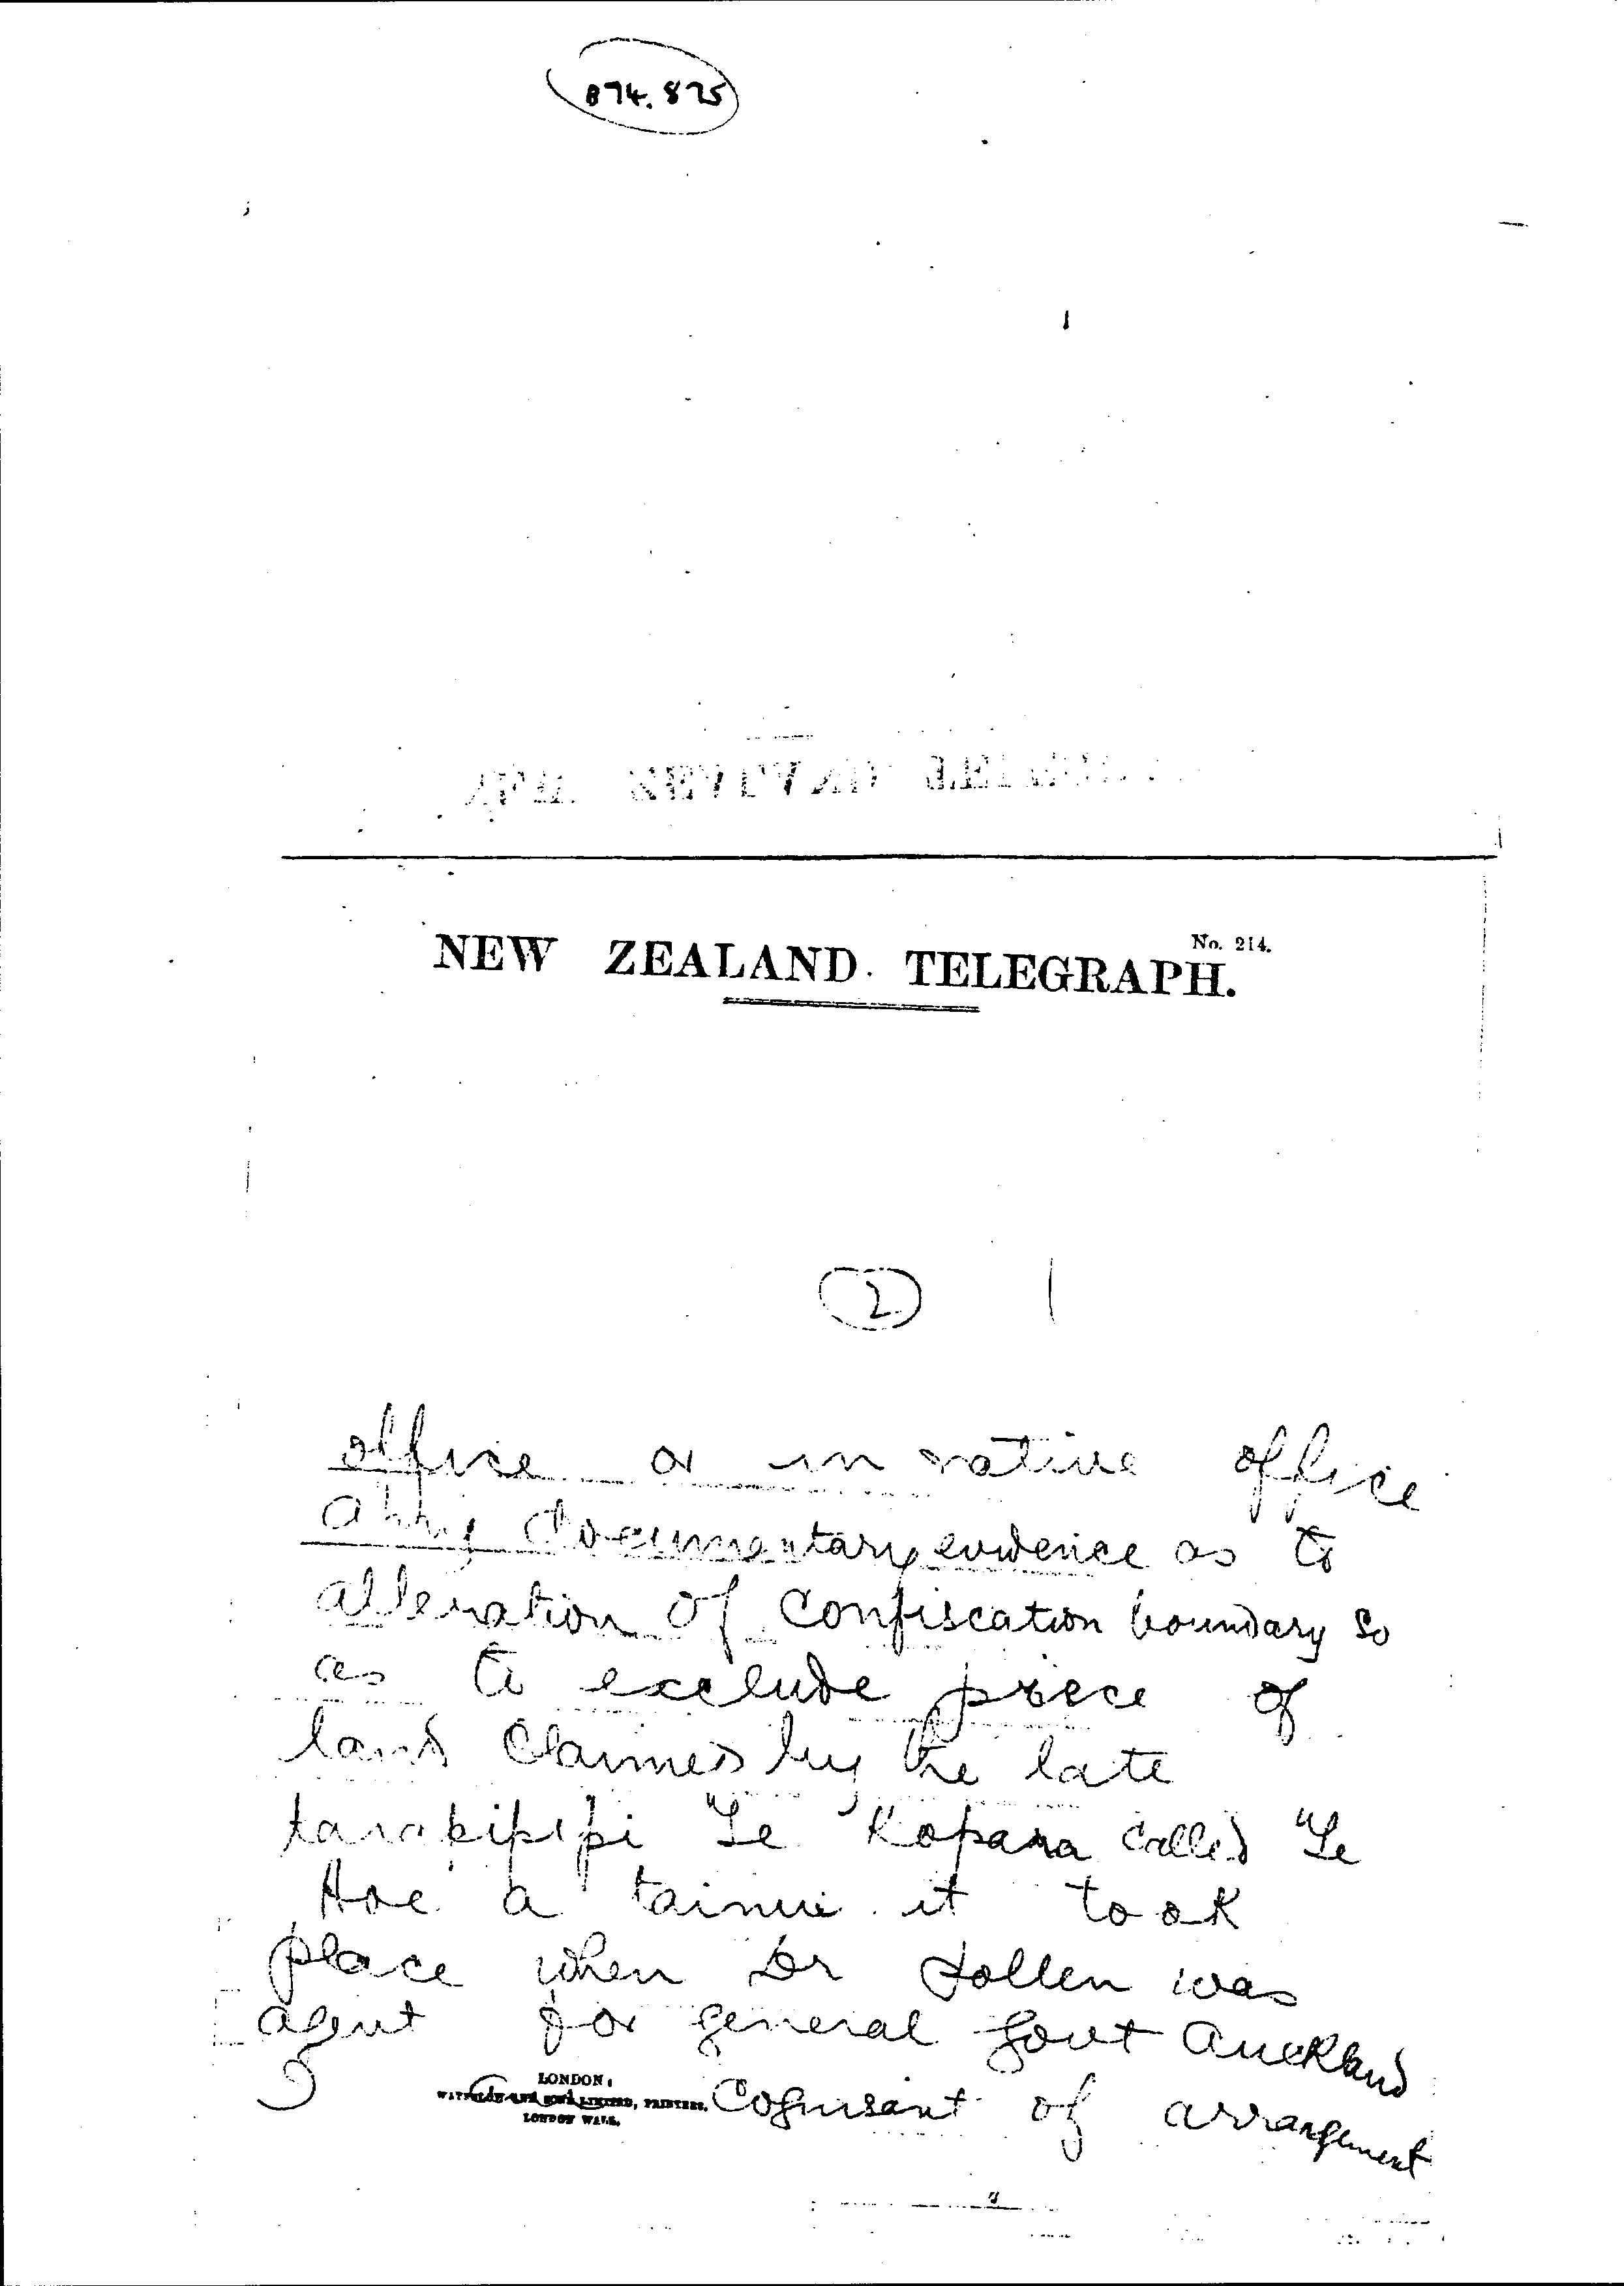 874.875
No. 214.
NEW ZEALAND TELEGRAPH.
2
office or in native office
any documentary evidence as to
alteration of confiscation boundary so
as to exclude piece of
land claimed by the late
tarapipipi "Te Kopara called "Te
Hoe a tainui it took
place when Dr Pollen was
agent for general Govt Auckland
LONDON:
WATERLOW AND SONS LIMITED, PRINTERS,
LONDON WALL.
Cognisant of arrangement